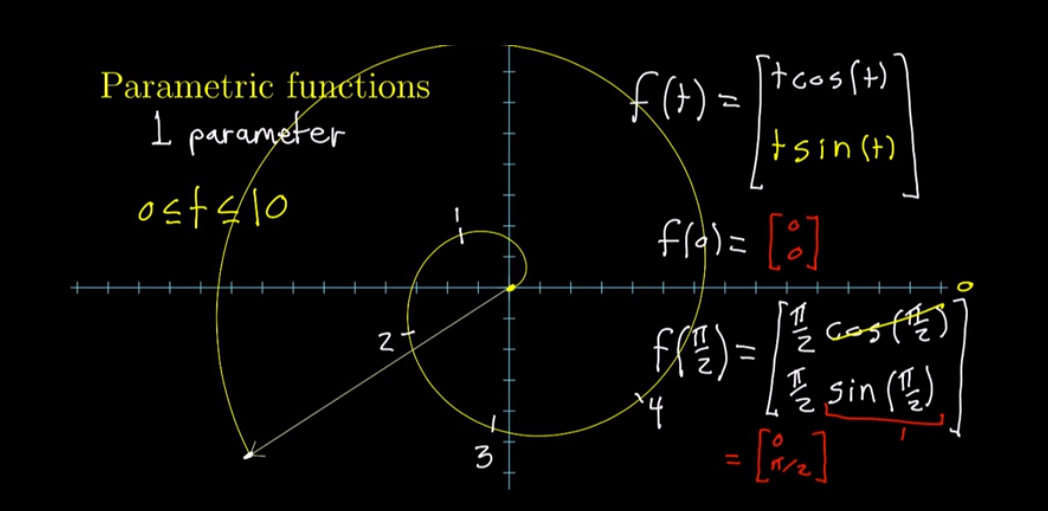 Parametric functions
1 parameter
0 ≤ t ≤ 10
f(t) = [t cos(t)
t sin(t)]
f(0) = [0
0]
0
f(π/2) = [π/2 cos(π/2)
π/2 sin(π/2)]
1
= [0
π/2]
1
2
3
4